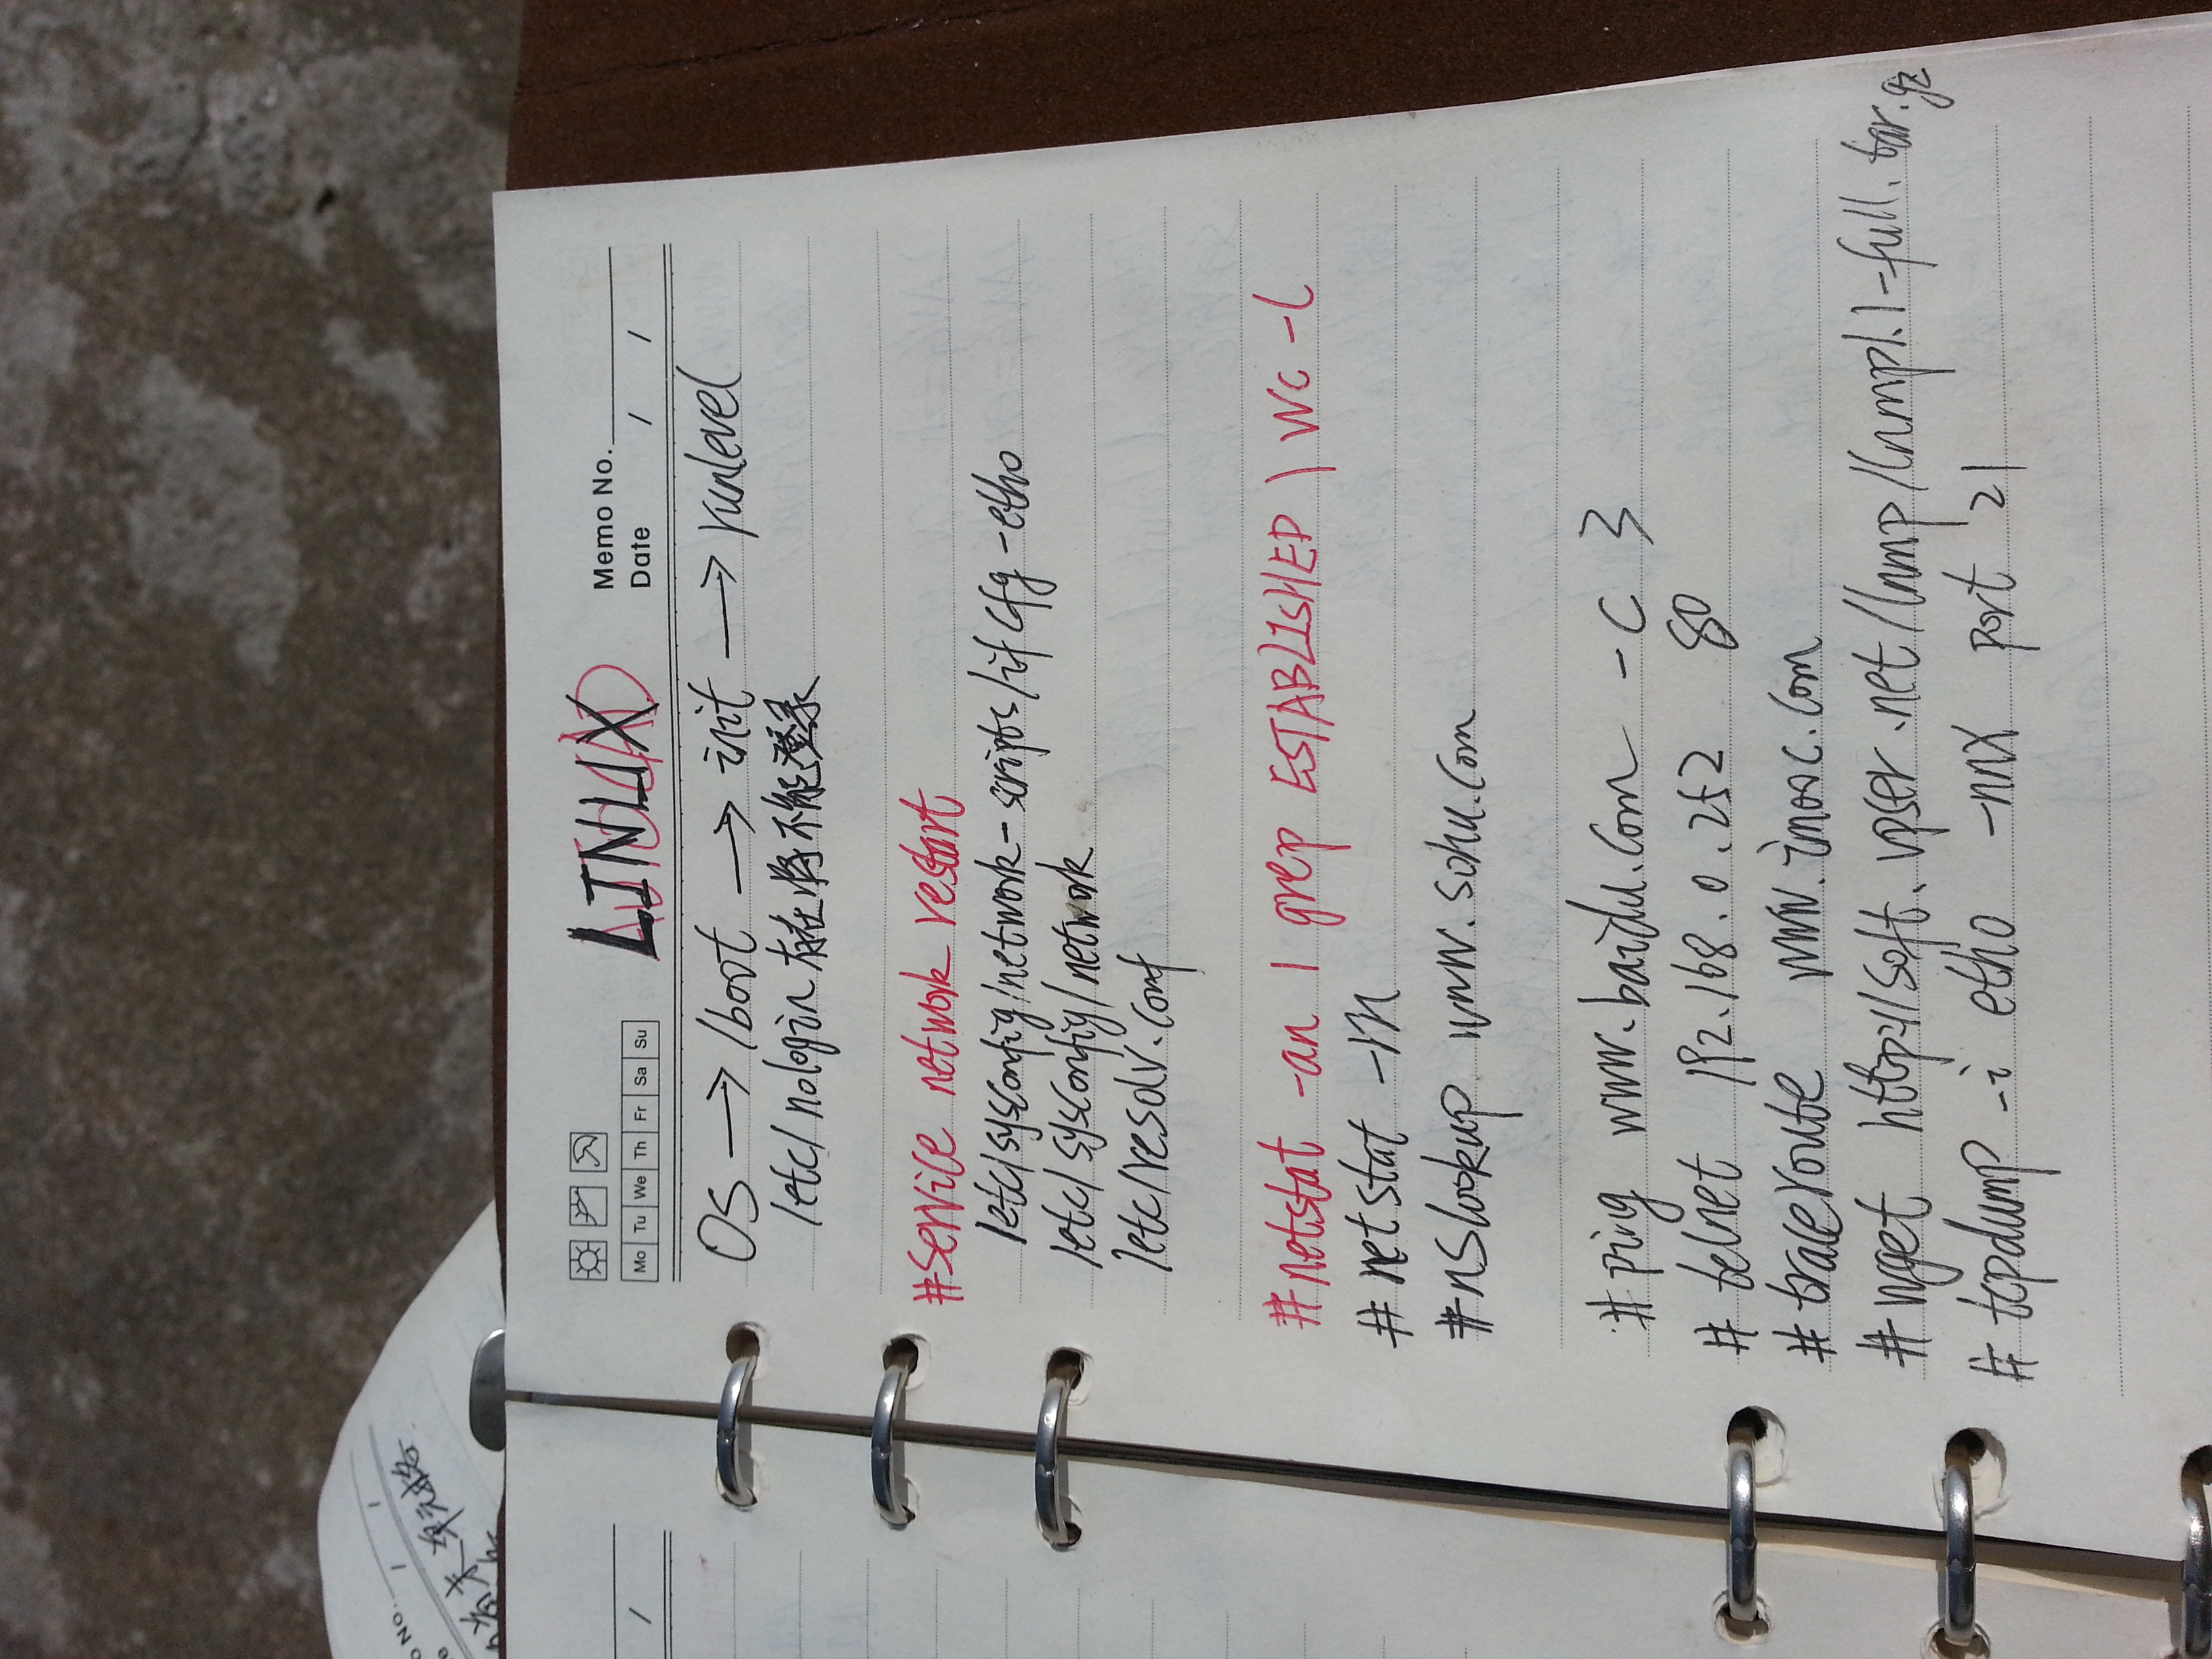 o No.
/ /
末单元格
/
LINUX
AUTOCAD
Memo No.
Date / /
Mo Tu We Th Fr Sa Su
OS → /boot → init → runlevel
/etc/nologin 存在将不能登录
#service network restart
/etc/sysconfig/network-scripts/ifcfg-eth0
/etc/sysconfig/network
/etc/resolv.conf
#netstat -an | grep ESTABLISHED | wc -l
# netstat -rn
#nslookup www.sohu.com
#ping www.baidu.com -c 3
# telnet 192.168.0.252 80
# traceroute www.imooc.com
#wget http://soft.vpser.net/lnmp/lnmp1.1-full.tar.gz
# tcpdump -i eth0 -nnX port 21